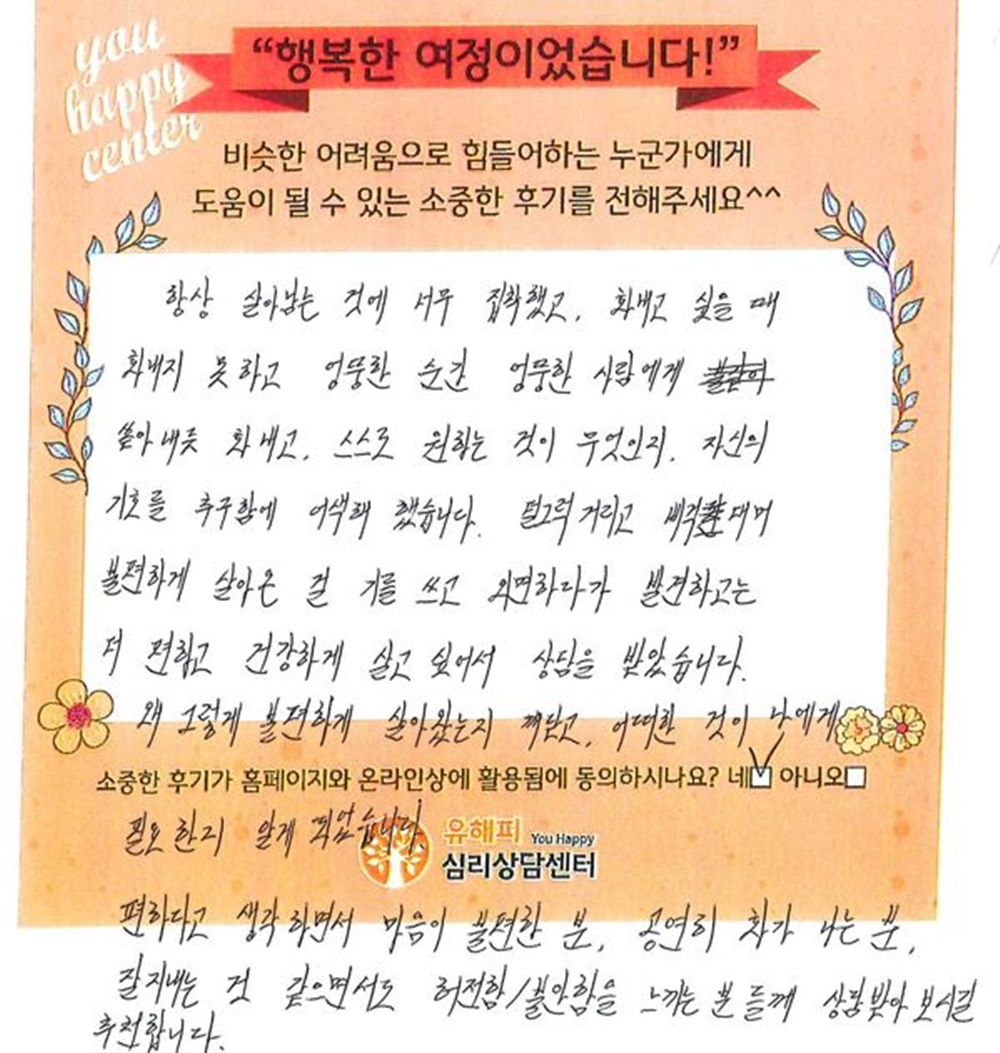 you
happy
center
“행복한 여정이었습니다!”
비슷한 어려움으로 힘들어하는 누군가에게
도움이 될 수 있는 소중한 후기를 전해주세요^^
항상 살아남는 것에 너무 집착했고, 화내고 싶을 때
화내지 못하고 엉뚱한 순간 엉뚱한 사람에게
쏟아내듯 화내고, 스스로 원하는 것이 무엇인지, 자신의
기호를 추구함에 어색해 했습니다. 덜그럭거리고 삐걱대며
불편하게 살아온 걸 기를 쓰고 외면하다가 발견하고는
더 편하고 건강하게 살고 싶어서 상담을 받았습니다.
왜 그렇게 불편하게 살아왔는지 깨닫고, 어떠한 것이 나에게
소중한 후기가 홈페이지와 온라인상에 활용됨에 동의하시나요? 네☑ 아니오□
필요한지 알게 되었습니다.
유해피 You Happy
심리상담센터
편하다고 생각하면서 마음이 불편한 분, 공연히 화가 나는 분,
잘지내는 것 같으면서도 허전함/불안함을 느끼는 분들께 상담받아보시길
추천합니다.